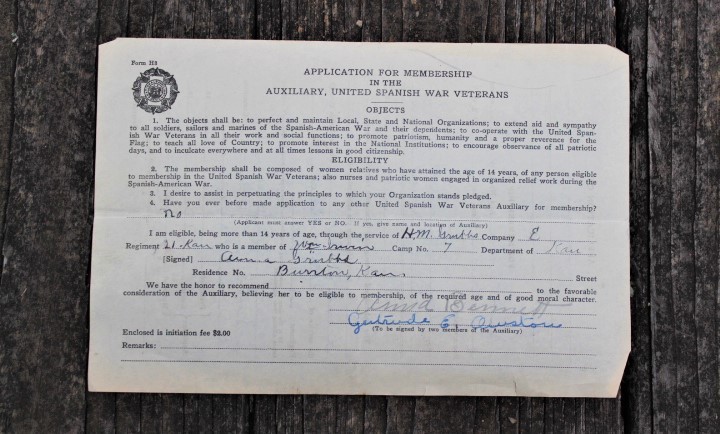 Form 118
APPLICATION FOR MEMBERSHIP
IN THE
AUXILIARY, UNITED SPANISH WAR VETERANS
OBJECTS
1. The objects shall be: to perfect and maintain Local, State and National Organizations; to extend aid and sympathy
to all soldiers, sailors and marines of the Spanish-American War and their dependents; to co-operate with the United Span-
ish War Veterans in all their work and social functions; to promote patriotism, humanity and a proper reverence for the
Flag; to teach all love of Country; to promote interest in the National Institutions; to encourage observance of all patriotic
days, and to inculcate everywhere and at all times lessons in good citizenship.
ELIGIBILITY
2. The membership shall be composed of women relatives who have attained the age of 14 years, of any person eligible
to membership in the United Spanish War Veterans; also nurses and patriotic women engaged in organized relief work during the
Spanish-American War.
3. I desire to assist in perpetuating the principles to which your Organization stands pledged.
4. Have you ever before made application to any other United Spanish War Veterans Auxiliary for membership?
No
(Applicant must answer YES or NO. If yes, give name and location of Auxiliary)
I am eligible, being more than 14 years of age, through the service of H.M. Grubbs Company E
Regiment 21-Kan who is a member of Camp No. 7 Department of Kan
[Signed] Anna Grubbs
Residence No. Burrton, Kans. Street
We have the honor to recommend to the favorable
consideration of the Auxiliary, believing her to be eligible to membership, of the required age and of good moral character.
Bennett
Gertrude E.
(To be signed by two members of the Auxiliary)
Enclosed is initiation fee $2.00
Remarks: